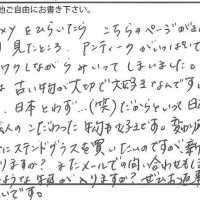 他ご自由にお書き下さい。
xyをひらいたら こちらのページが
見たところ、アンティークがいっぱいで
ワクしながらみいってしまいました。
は古い物が大切で大好きなんです
、日本とわず…(笑)だからといって日
人のこだわった物も好きです。変わり
にステンドグラスを買いたいのですが新
りますか？またメールでの問い合わせも
ような物が入りますか？ぜひお返事
いです。